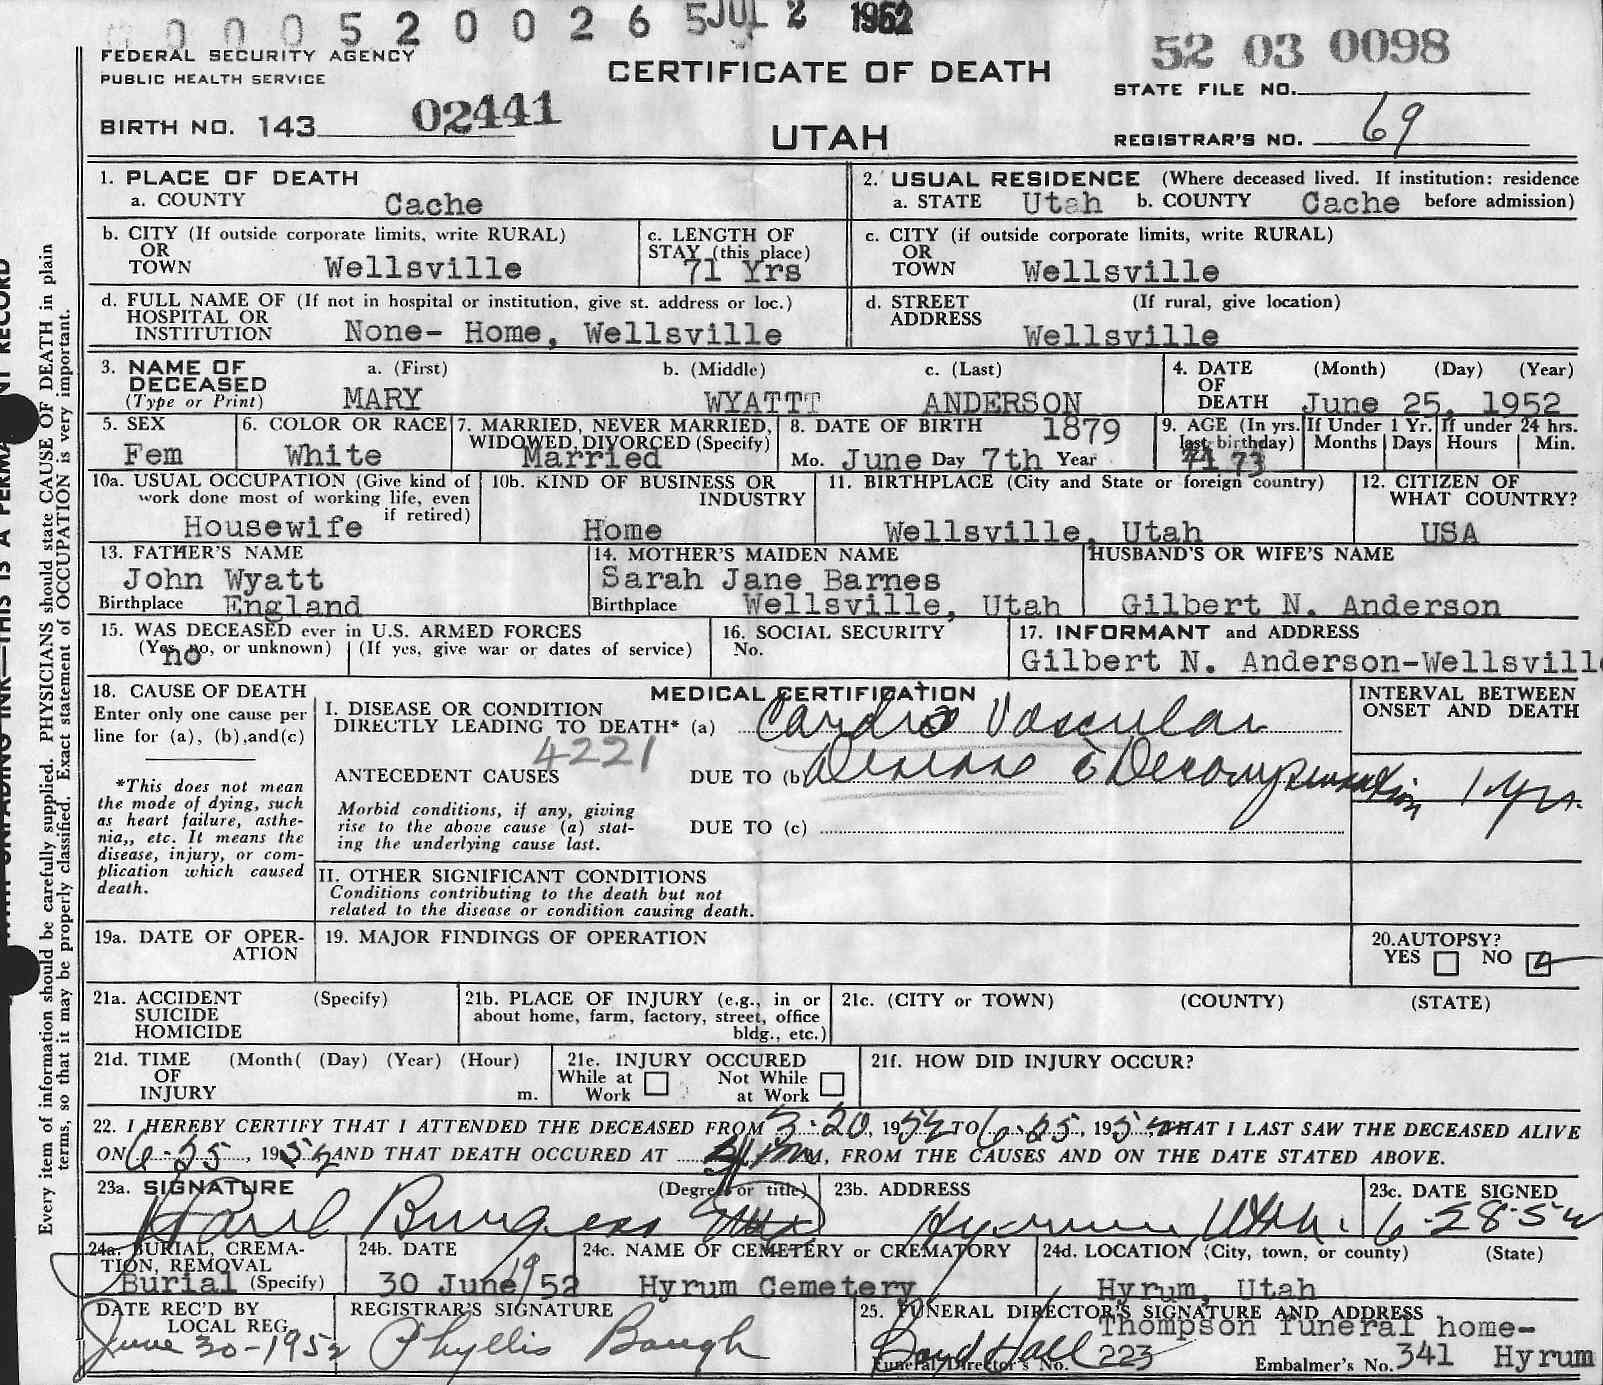 0 0 0 5 2 0 0 2 6 5 JUL 2 1952
FEDERAL SECURITY AGENCY
PUBLIC HEALTH SERVICE
CERTIFICATE OF DEATH
52 03 0098
STATE FILE NO.
BIRTH NO. 143 02441
UTAH
REGISTRAR'S NO. 69
1. PLACE OF DEATH
a. COUNTY Cache
2. USUAL RESIDENCE (Where deceased lived. If institution: residence
a. STATE Utah b. COUNTY Cache before admission)
b. CITY (If outside corporate limits, write RURAL)
OR
TOWN Wellsville
c. LENGTH OF
STAY (this place)
71 Yrs
c. CITY (if outside corporate limits, write RURAL)
OR
TOWN Wellsville
d. FULL NAME OF (If not in hospital or institution, give st. address or loc.)
HOSPITAL OR
INSTITUTION None- Home, Wellsville
d. STREET (If rural, give location)
ADDRESS
Wellsville
3. NAME OF a. (First) b. (Middle) c. (Last)
DECEASED
(Type or Print) MARY WYATT ANDERSON
4. DATE (Month) (Day) (Year)
OF
DEATH June 25, 1952
5. SEX
Fem
6. COLOR OR RACE
White
7. MARRIED, NEVER MARRIED,
WIDOWED, DIVORCED (Specify)
Married
8. DATE OF BIRTH 1879
Mo. June Day 7th Year
9. AGE (In yrs.
last birthday)
73
If Under 1 Yr.
Months Days
If under 24 hrs.
Hours Min.
10a. USUAL OCCUPATION (Give kind of
work done most of working life, even
if retired)
Housewife
10b. KIND OF BUSINESS OR
INDUSTRY
Home
11. BIRTHPLACE (City and State or foreign country)
Wellsville, Utah
12. CITIZEN OF
WHAT COUNTRY?
USA
13. FATHER'S NAME
John Wyatt
Birthplace England
14. MOTHER'S MAIDEN NAME
Sarah Jane Barnes
Birthplace Wellsville, Utah
HUSBAND'S OR WIFE'S NAME
Gilbert N. Anderson
15. WAS DECEASED ever in U.S. ARMED FORCES
(Yes, no, or unknown) (If yes, give war or dates of service)
no
16. SOCIAL SECURITY
No.
17. INFORMANT and ADDRESS
Gilbert N. Anderson-Wellsville
18. CAUSE OF DEATH
Enter only one cause per
line for (a), (b), and(c)
*This does not mean
the mode of dying, such
as heart failure, asthe-
nia,, etc. It means the
disease, injury, or com-
plication which caused
death.
MEDICAL CERTIFICATION
I. DISEASE OR CONDITION
DIRECTLY LEADING TO DEATH* (a) Cardio Vascular
4221
ANTECEDENT CAUSES DUE TO (b) Disease c̄ Decompensation
Morbid conditions, if any, giving
rise to the above cause (a) stat-
ing the underlying cause last.
DUE TO (c)
INTERVAL BETWEEN
ONSET AND DEATH
1 yr.
II. OTHER SIGNIFICANT CONDITIONS
Conditions contributing to the death but not
related to the disease or condition causing death.
19a. DATE OF OPER-
ATION
19. MAJOR FINDINGS OF OPERATION
20. AUTOPSY?
YES NO
21a. ACCIDENT (Specify)
SUICIDE
HOMICIDE
21b. PLACE OF INJURY (e.g., in or
about home, farm, factory, street, office
bldg., etc.)
21c. (CITY or TOWN) (COUNTY) (STATE)
21d. TIME (Month( (Day) (Year) (Hour)
OF
INJURY m.
21e. INJURY OCCURED
While at Work Not While at Work
21f. HOW DID INJURY OCCUR?
22. I HEREBY CERTIFY THAT I ATTENDED THE DECEASED FROM 3-20, 1952 TO 6-25, 1952 THAT I LAST SAW THE DECEASED ALIVE
ON 6-25, 1952 AND THAT DEATH OCCURED AT M, FROM THE CAUSES AND ON THE DATE STATED ABOVE.
23a. SIGNATURE (Degree or title)
Burgess
23b. ADDRESS
Hyrum, Utah
23c. DATE SIGNED
6-28-52
24a. BURIAL, CREMA-
TION, REMOVAL
Burial (Specify)
24b. DATE
30 June 1952
24c. NAME OF CEMETERY or CREMATORY
Hyrum Cemetery
24d. LOCATION (City, town, or county) (State)
Hyrum, Utah
DATE REC'D BY
LOCAL REG.
June 30-1952
REGISTRAR'S SIGNATURE
Phyllis Baugh
25. FUNERAL DIRECTOR'S SIGNATURE AND ADDRESS
Thompson funeral home-
Boyd Hall
Funeral Director's No. 223 Embalmer's No. 341 Hyrum
Every item of information should be carefully supplied. PHYSICIANS should state CAUSE OF DEATH in plain
terms, so that it may be properly classified. Exact statement of OCCUPATION is very important.